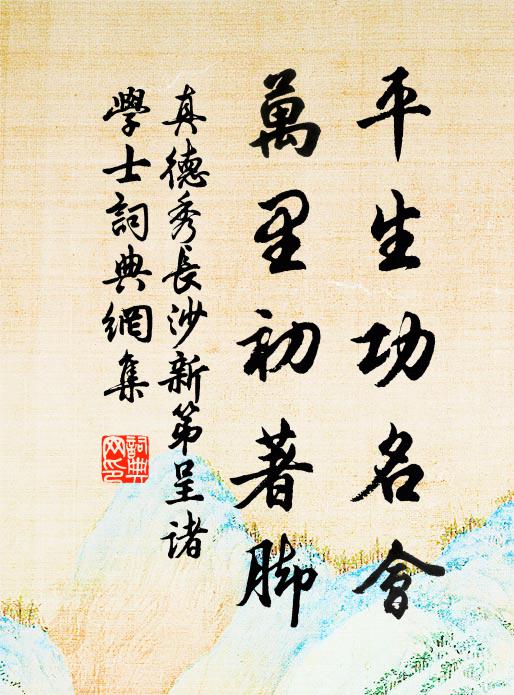 平生功名會
萬里初著脚
真德秀長沙新第呈諸
學士詞典網集
詞典
网印